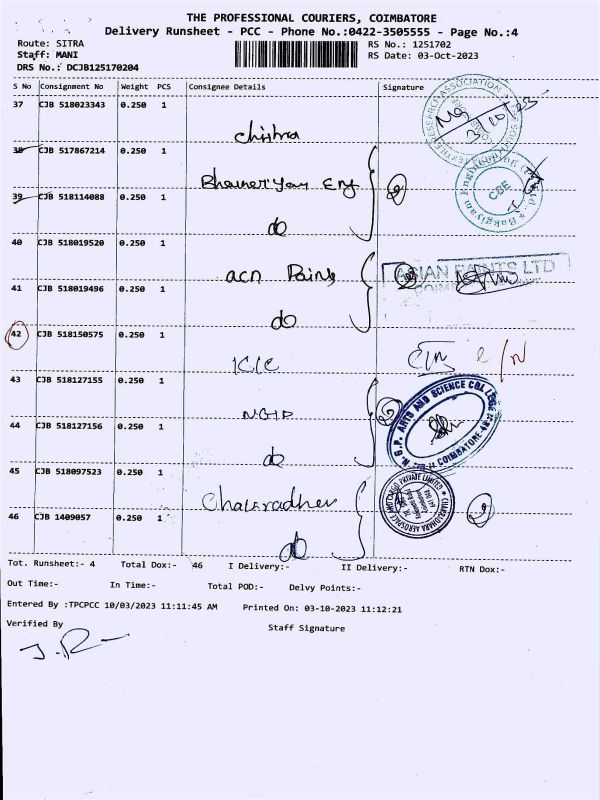 THE PROFESSIONAL COURIERS, COIMBATORE
Delivery Runsheet - PCC - Phone No.:0422-3505555 - Page No.:4
Route: SITRA
RS No.: 1251702
Staff: MANI
RS Date: 03-Oct-2023
DRS No.: DCJB125170204
S No Consignment No Weight PCS Consignee Details Signature
37 CJB 518023343 0.250 1
chitra
38 CJB 517867214 0.250 1
39 CJB 518114088 0.250 1
do
40 CJB 518019520 0.250 1
acn Paints
ASIAN PAINTS LTD
41 CJB 518019496 0.250 1
do
42 CJB 518150575 0.250 1
43 CJB 518127155 0.250 1
NGP
N.G.P. ARTS AND SCIENCE COLLEGE
COIMBATORE-48
44 CJB 518127156 0.250 1
do
45 CJB 518097523 0.250 1
46 CJB 1409057 0.250 1
do
Tot. Runsheet:- 4 Total Dox:- 46 I Delivery:- II Delivery:- RTN Dox:-
Out Time:- In Time:- Total POD:- Delvy Points:-
Entered By :TPCPCC 10/03/2023 11:11:45 AM Printed On: 03-10-2023 11:12:21
Verified By Staff Signature